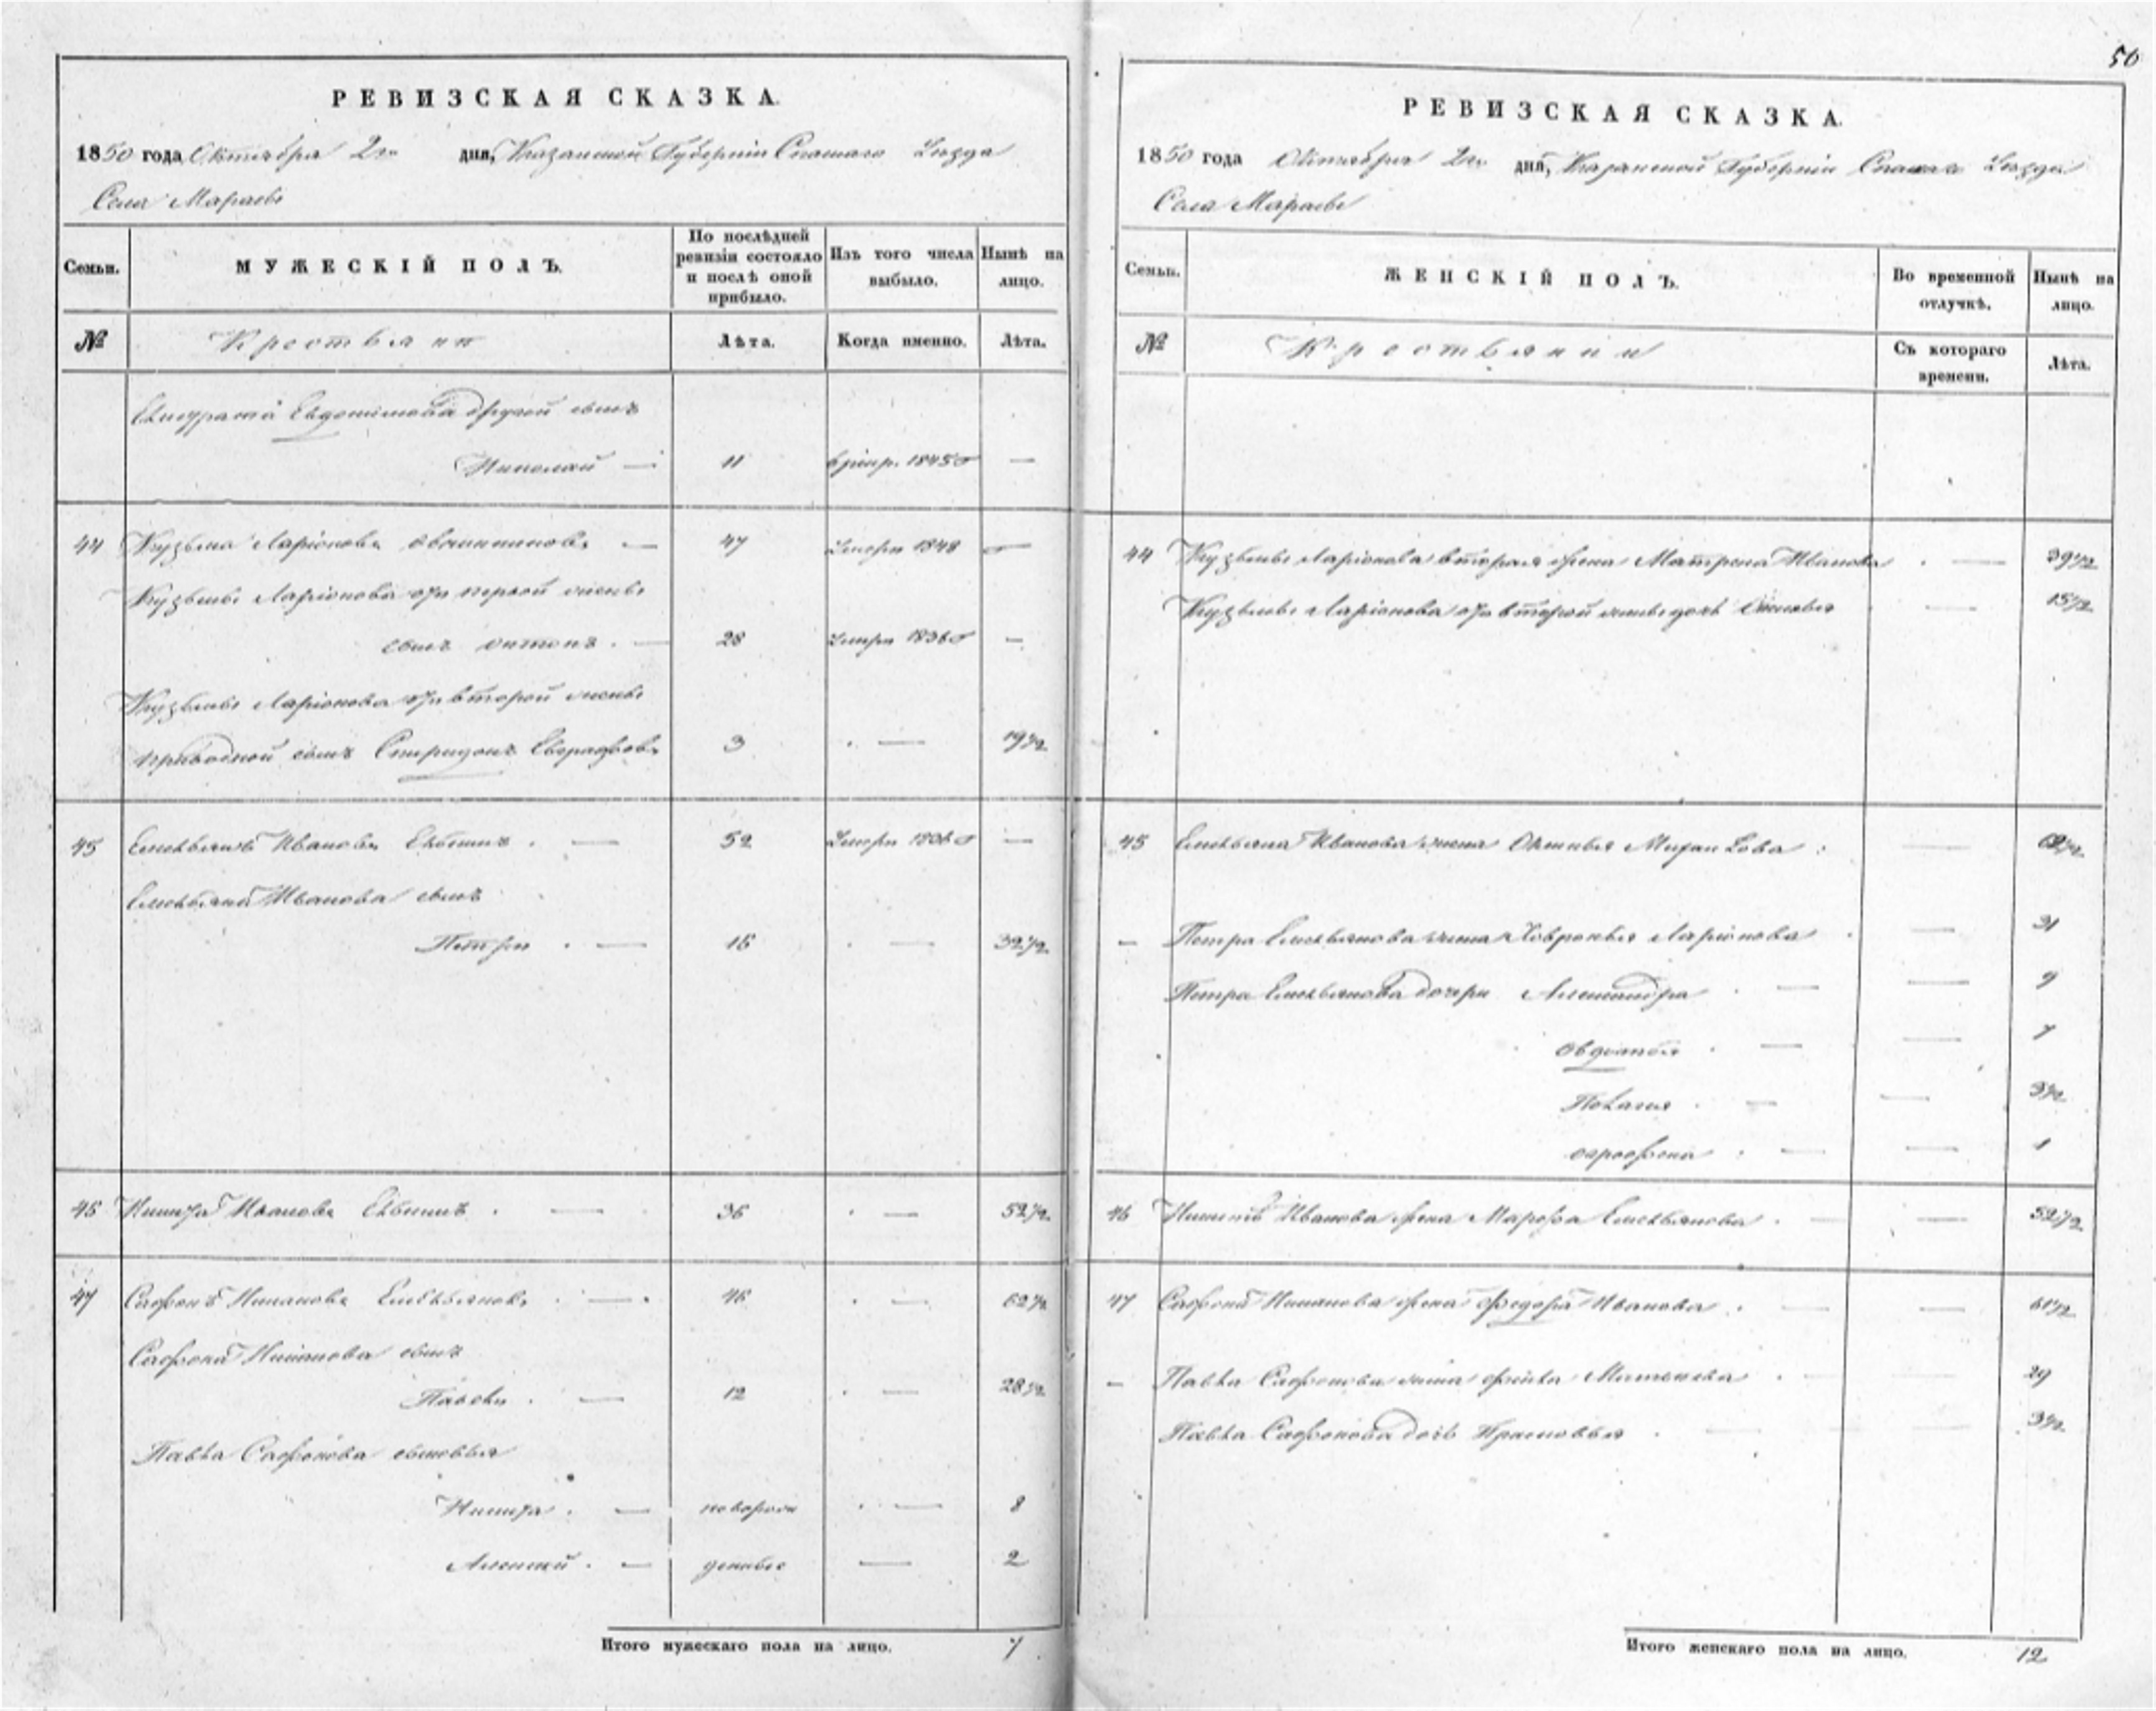 РЕВИЗСКАЯ СКАЗКА.
1850 года Октября 2го дня, Казанской Губерніи Спаскаго Уезда
Села
Семьи.
МУЖЕСКІЙ ПОЛЪ.
По послѣдней ревизіи состояло и послѣ оной прибыло.
Изъ того числа выбыло.
Нынѣ на лицо.
№
Крестьяне
Лѣта.
Когда именно.
Лѣта.
Евдокимова другой сынъ
Николай — 11 в рекр. 1845го —
44 Кузьма Ларіоновъ — 47 Умеръ 1848 —
Кузьмы Ларіонова отъ первой жены
сынъ Антонъ. — 28 Умеръ 1836го —
Кузьмы Ларіонова отъ второй жены
приводной сынъ Спиридонъ Евграфовъ 3 — 19½
45 Емельянъ Ивановъ — 52 Умеръ —
Емельяна Иванова сынъ
Петръ — 16 — 32½
46 Никита Ивановъ — 36 — 52½
47 Сафонъ Емельяновъ — 46 — 62½
Сафона сынъ
Павелъ — 12 — 28½
Павла Сафонова сыновья
Никита — новорож 8
Алексей — денные — 2
Итого мужескаго пола на лицо. 7
56
РЕВИЗСКАЯ СКАЗКА.
1850 года Октября 2го дня, Казанской Губерніи Спаскаго Уезда
Села
Семьи.
ЖЕНСКІЙ ПОЛЪ.
Во временной отлучкѣ.
Нынѣ на лицо.
№
Крестьянки
Съ котораго времени.
Лѣта.
44 Кузьмы Ларіонова вторая жена Матрена Иванова — 39½
Кузьмы Ларіонова отъ второй жены дочь — 15½
45 Емельяна Иванова жена
— Петра Емельянова жена Ховронья Ларіонова — 31
Петра Емельянова дочери Александра — 9
Авдотья — 7
Пелагия — 3½
Афросѣена — 1
46 Никиты Иванова жена Марфа Емельянова — 52½
47 Сафона жена Федора Иванова — 61½
— Павла Сафонова жена 29
Павла Сафонова дочь Прасковья — 3½
Итого женскаго пола на лицо. 12